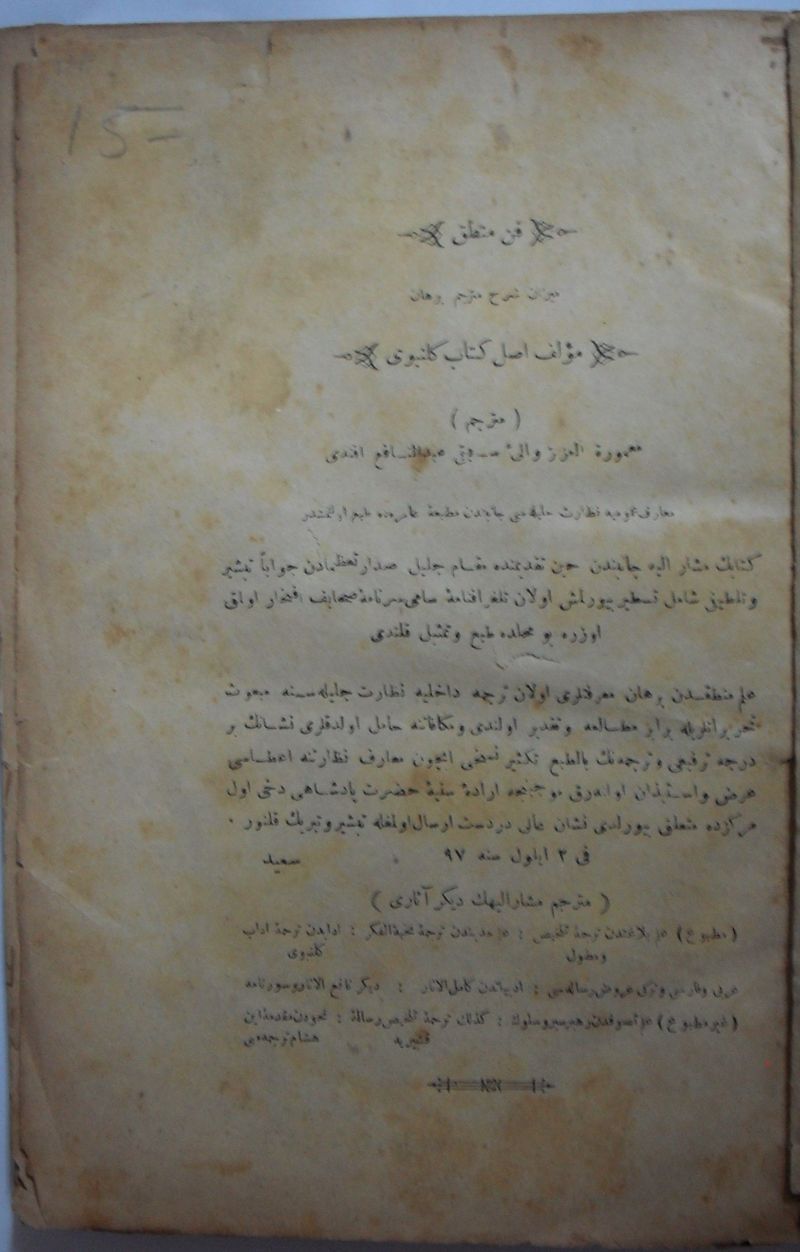 15-
فن منطق
ميزان شرح مترجم برهان
مؤلف اصل كتاب كلنبوى
( مترجم )
معمورة العزيز والئ سـابق عبدالنـافع افندى
معارف عموميه نظارت جليله سى جانبندن مطبعۀ عامره ده طبع اولنمشدر
كتابك مشار اليه جانبندن حين تقديمنده مقـام جليل صدارتعظمادن جواباً تبشير
وتلطيفى شامل تسطير بيورلمش اولان تلغرافنامۀ سامى سرنامۀ صحايف افتخار اولق
اوزره بو محلده طبع وتمثيل قلندى
علم منطقدن برهان معرفتلرى اولان ترجمه داخليه نظارت جليله سـنه مبعوث
تحريراتلريله برابر مطـالعه وتقدير اولندى ومكافاتنه حامل اولدقلرى نشـانك بر
درجه ترفيعى وترجمه نك بالطبع تكثير نفعى ايچون معارف نظارتنه اعطـاسى
عرض واسـتيذان اولنه رق موجبنجه ارادۀ سنيۀ حضرت پادشـاهى دخى اول
مركزده متعلق بيورلدى نشان عالى دردست ارسال اولمغله تبشير وتبريك قلنور ٠
فى ٢ ايلول سنه ٩٧ سعيد
( مترجم مشار اليهك ديكر آثارى )
( مطبوع ) علم بلاغتدن ترجمۀ تلخيص ومطول : علم حديثدن ترجمۀ نخبة الفكر : ادابدن ترجمۀ اداب كلنبوى
عربى وفارسى وتركى عروض رساله سى : ادبياتدن كامل الاثار : ديكر نافع الاثار وسورنامه
( غير مطبوع ) علم تصوفدن رهبر سير وسلوك : كذلك ترجمۀ تلخيص رسالۀ قشيريه : نحودن مقدمۀ ابن هشام ترجمه سى